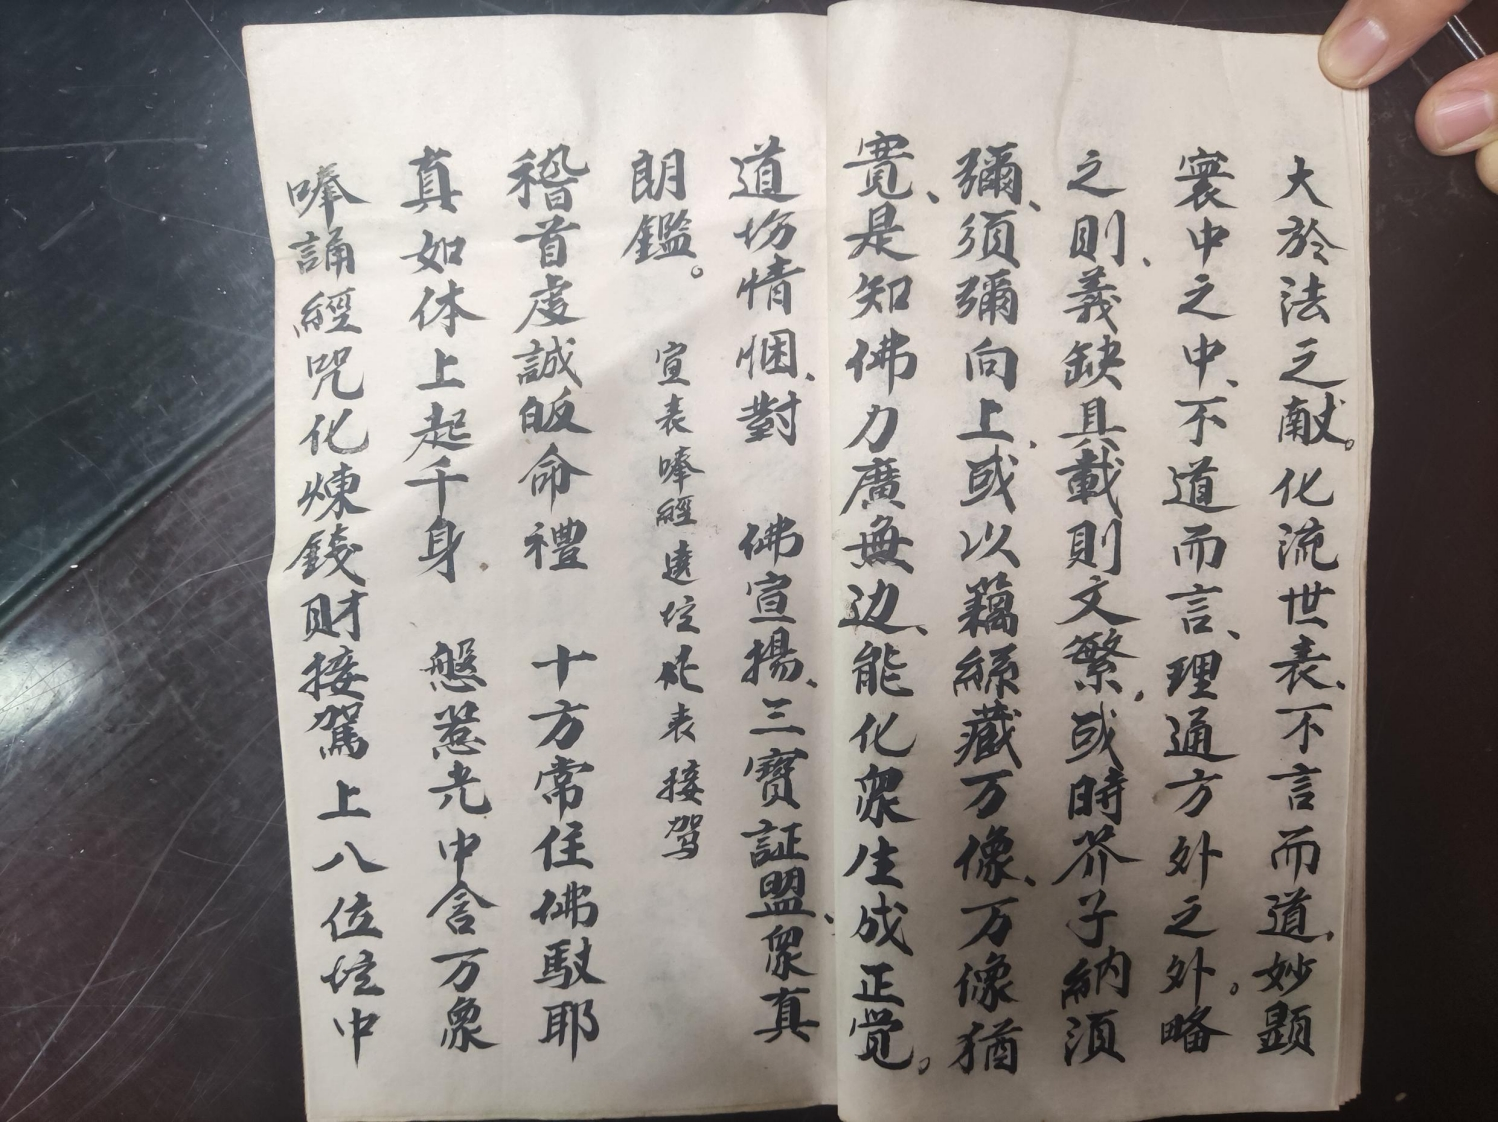 大於法之献。化流世表、不言而道、妙顕
寰中之中、不道而言、理通方外之外。略
之則、義缺具載則文繁、或時芥子納須
彌、須彌向上、或以藕絲藏万像、万像猶
寛、是知佛力廣無边、能化衆生成正覚。
道场情悃、對 佛宣揚、三寶証盟、衆真
朗鑑。 宣表唪經遶坛化表接驾
稽首虔誠皈命禮 十方常住佛馱耶
真如体上起千身 慇惹光中含万象
唪誦經咒化煉錢財接駕上八位坛中